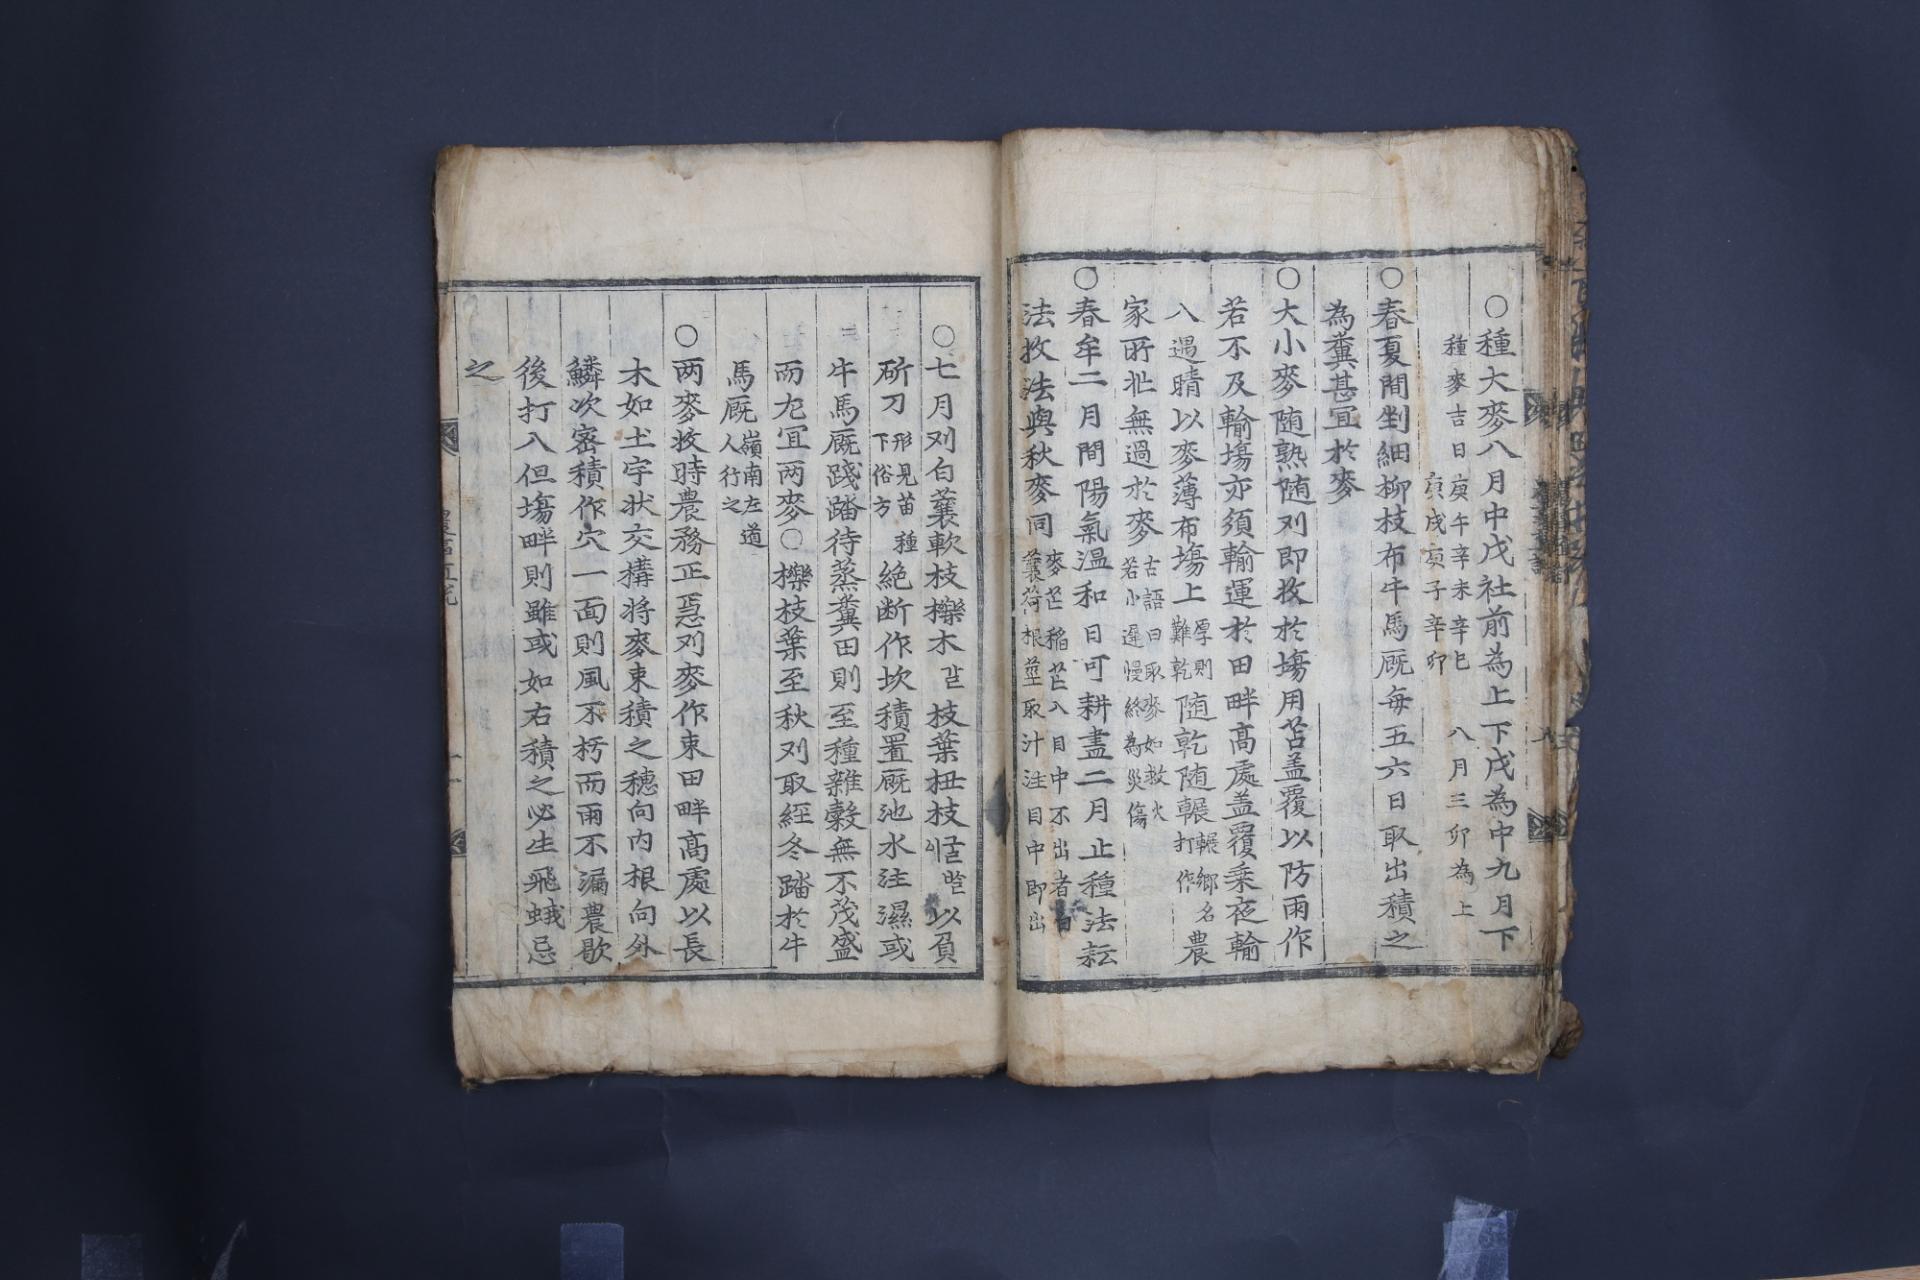 ○種大麥八月中戊社前為上下戊為中九月下
種麥吉日庚午辛未辛巳庚戌庚子辛卯 八月三卯為上
○春夏間剉細柳枝布牛馬厩每五六日取出積之
為糞甚宜於麥
○大小麥随熟随刈即收於塲用苫盖覆以防雨作
若不及輸塲亦須輸運於田畔髙處盖覆乗夜輸
入遇晴以麥薄布塲上厚則難乾随乾随輾輾鄉名打作農
家所忙無過於麥古語曰取麥如救火若小遲慢終為災傷
○春牟二月間陽氣温和日可耕盡二月止種法耘
法收法與秋麥同麥芒稻芒入目中不出者白蘘荷根莖取汁注目中即出
○七月刈白蘘軟枝櫟木갈枝葉杻枝以負
斫刀形見苗種下俗方絶断作坎積置厩池水注濕或
牛馬厩踐踏待蒸糞田則至種雜穀無不茂盛
而尤宜两麥○櫟枝葉至秋刈取經冬踏於牛
馬厩嶺南左道人行之
○两麥收時農務正急刈麥作束田畔髙處以長
木如土宇状交搆将麥束積之穗向内根向外
鱗次宻積作穴一面則風不朽而雨不漏農歇
後打入但塲畔則雖或如右積之必生飛蛾忌
之